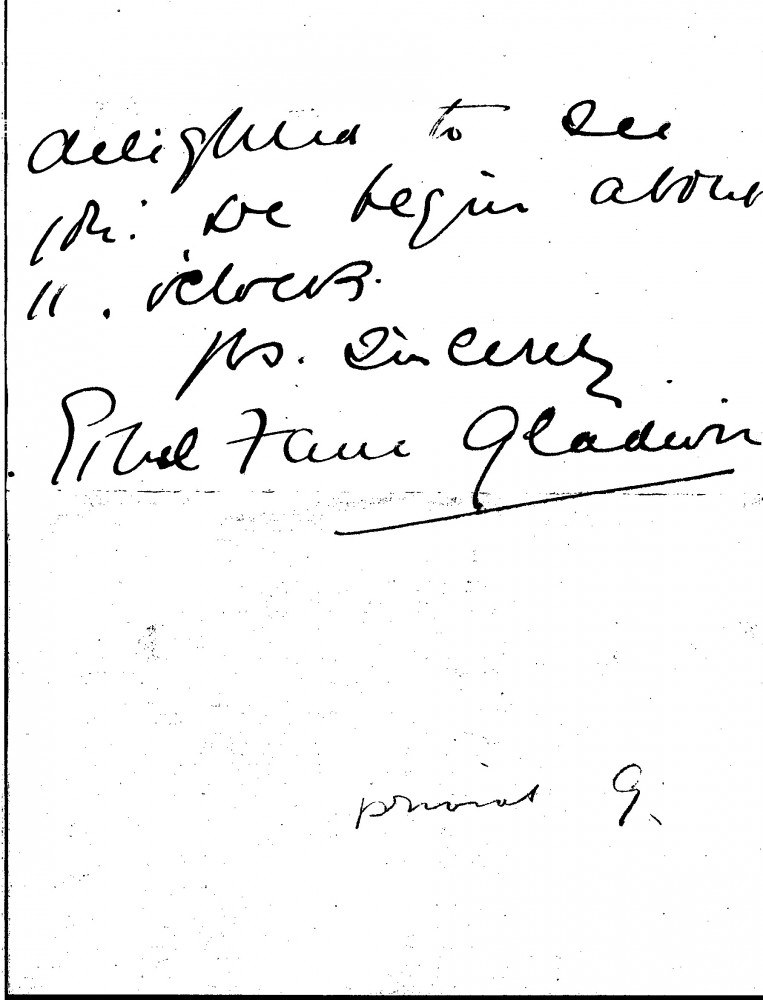 delighted to see
you. We begin about
11. o'clock.
Yrs. Sincerely
Ethel Fane Gladwin
G.